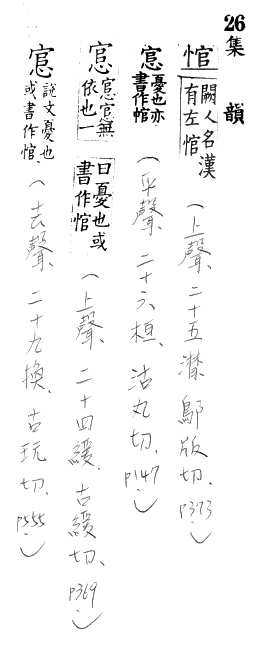 26集韻
悺 闕人名漢有左悺（上聲、二十五潸、鄔版切、p373）
悹 憂也亦書作悺（平聲、二十六桓、沽丸切、p147）
悹 悹悹無依也一曰憂也或書作悺（上聲、二十四緩、古緩切、p369）
悹 說文憂也或書作悺（去聲、二十九換、古玩切、p555）